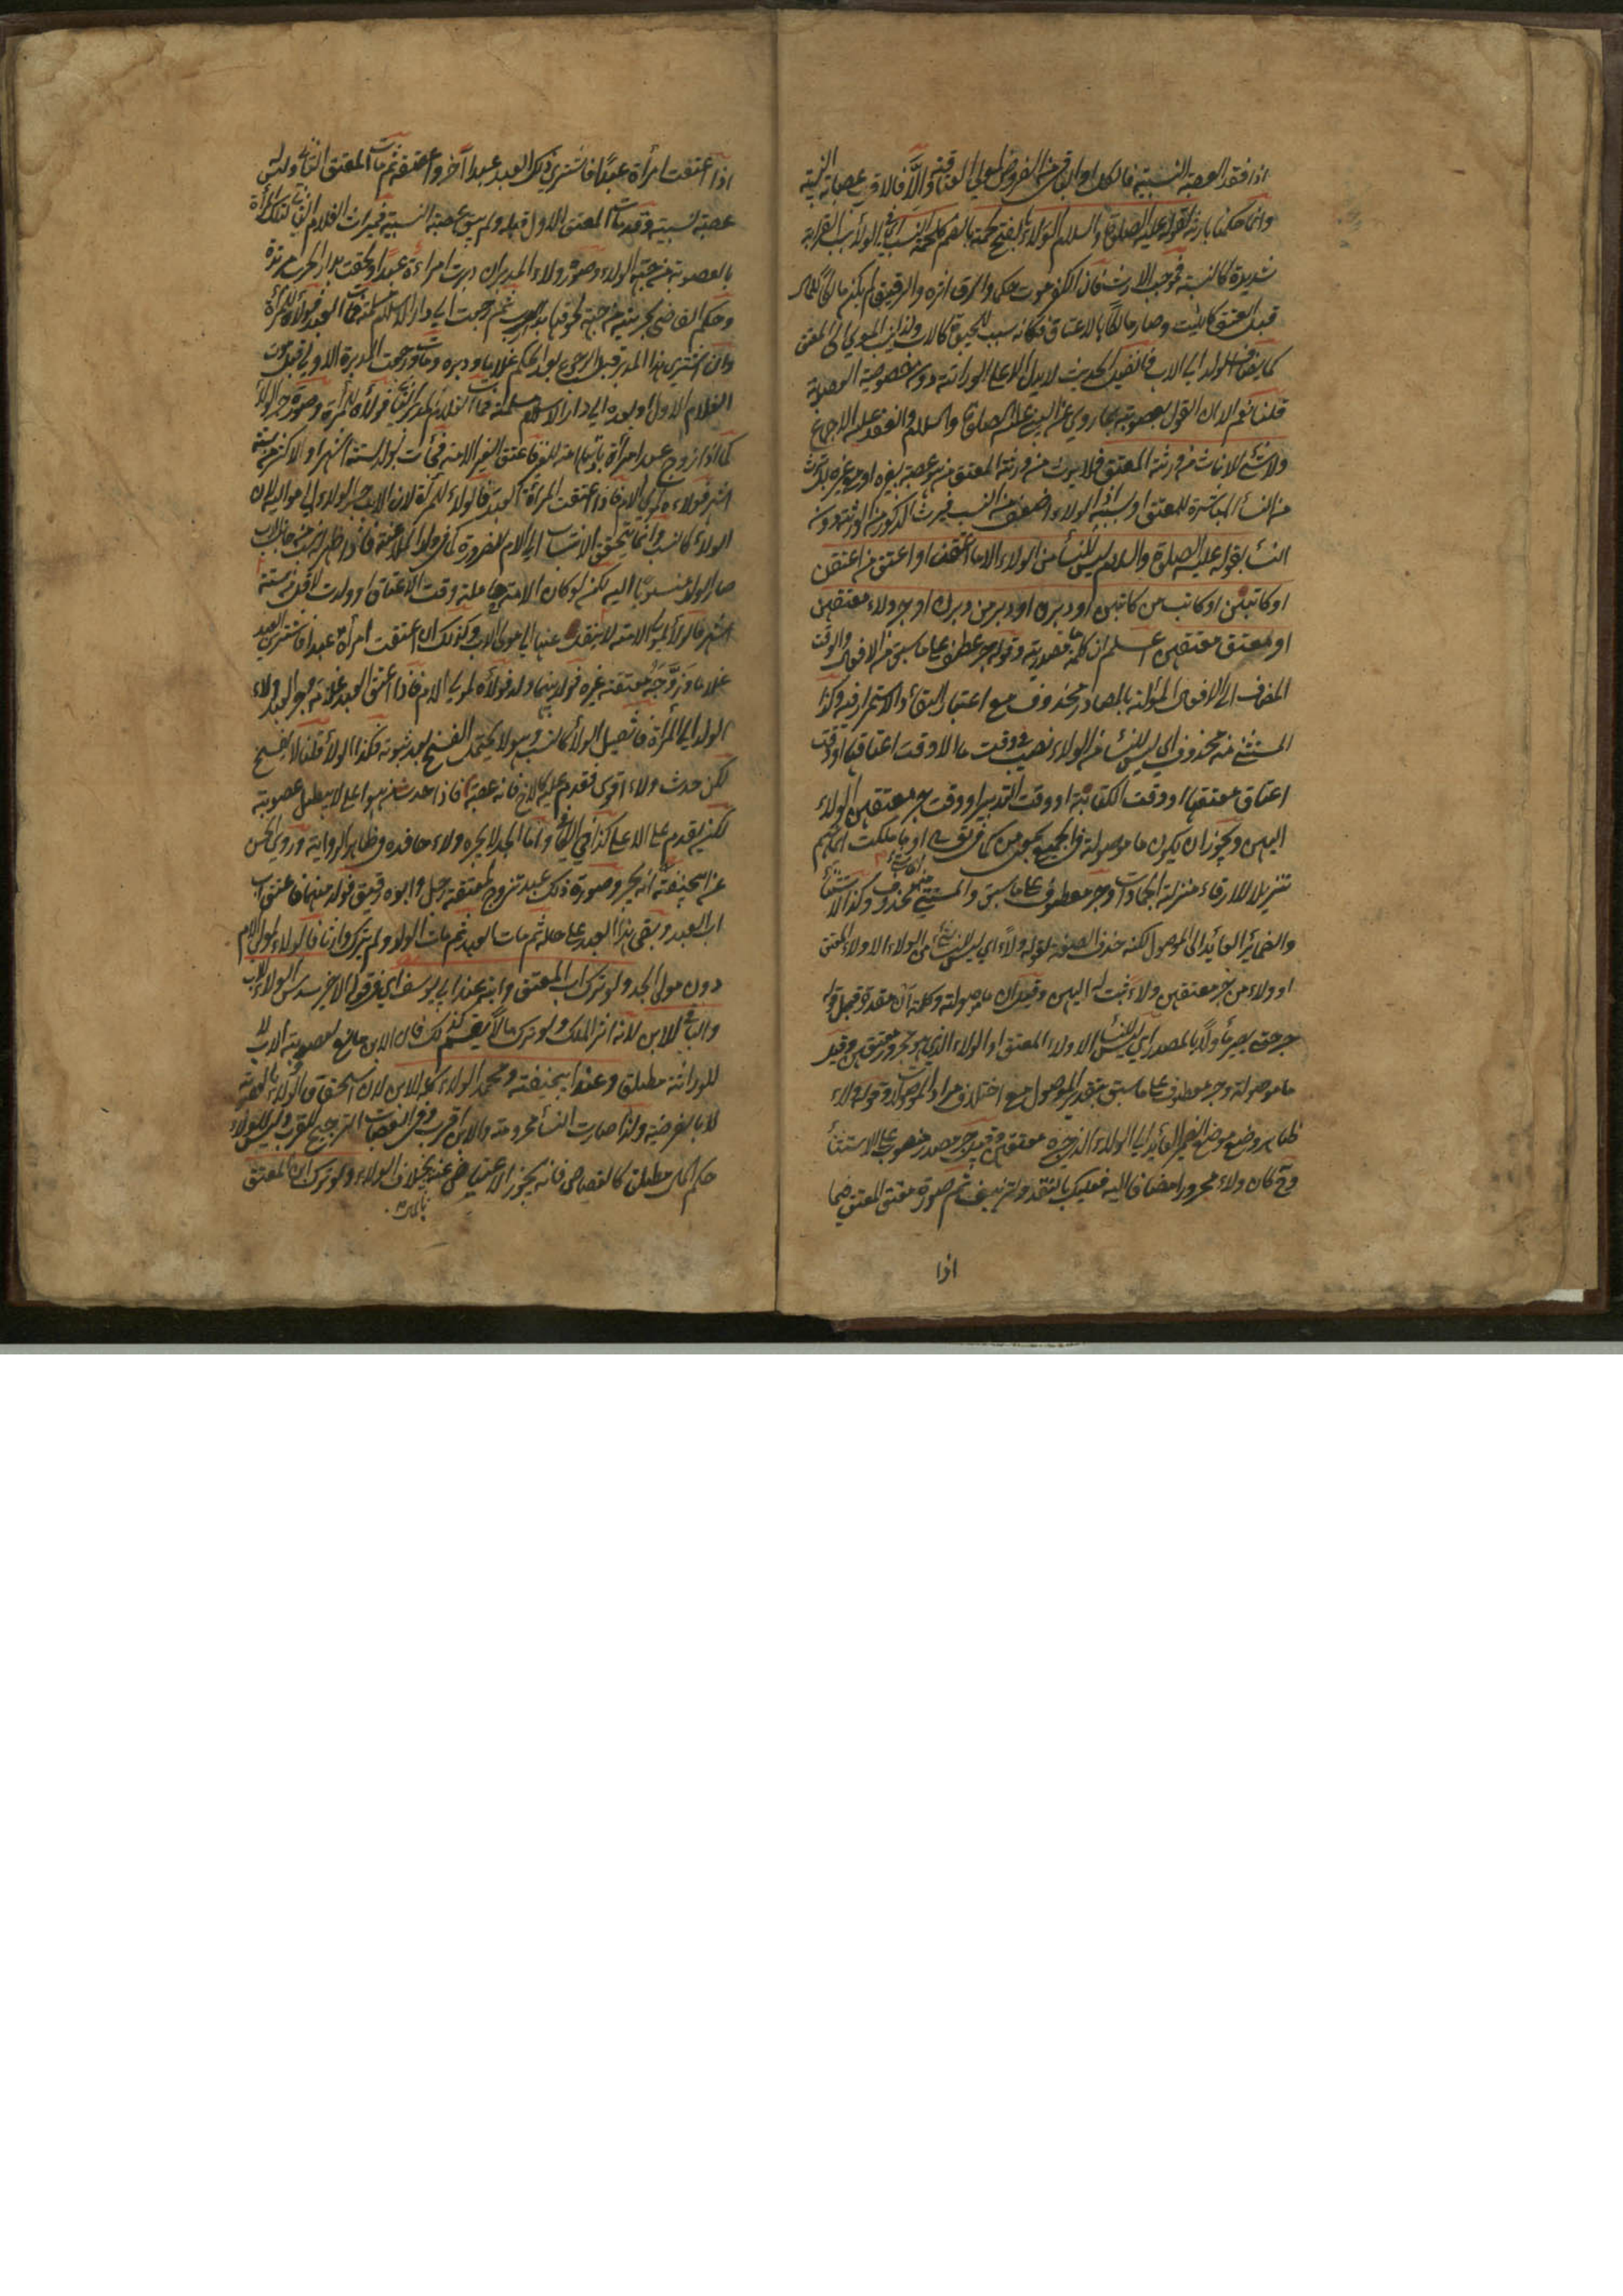 اذا فقد العصبة النسبية فالكل او الباقى من الفروض لمولى العتاقة والا فالاقرب عصباته النسبية
وانما حكمنا بارثه لقوله عليه الصلوة والسلام الولاء بالفتح لحمة بالضم كلحمة النسب اى فى الولاء قرابة
شديدة كالنسبة فوجب الارث فان الكفر موت حكمى والرق اثره والرقيق لم يكن مالكا للمال
قبل العتق كالميت وصار مالكا بالاعتاق فكانه سبب لتحيوة كالاب ولذا ينسب المولى الى المعتق
كما يضاف الولد الى الاب فان قيل الحديث لا يدل الا على الوراثة دون خصوصية العصوبة
قلنا نعم الا ان القول بعصوبته بما روى عن النبى عليه الصلوة والسلام وانعقد عليه الاجماع
ولا شئ للاناث من ورثة المعتق فلا يرث من ورثة المعتق من هو عصبة بغيره او مع غيره بل يرث
من النساء المباشرة للعتق او سببه اذ الولاء اضعف من النسب فيرث الذكور منه دون
النساء بقوله عليه الصلوة والسلام ليس للنساء من الولاء الا ما اعتقن او اعتق من اعتقن
او كاتبن او كاتب من كاتبن او دبرن او دبر من دبرن او جر ولاء معتقهن
او معتق معتقهن اعلم ان كلمة ما مصدرية وقوله جر عطف على ما سبق من الافعال والوقت
المضاف الى الافعال المؤلة بالمصادر محذوف مع اعتبار البقاء والاستمرار فيه وكذا
المستثنى منه محذوف اى ليس للنساء من الولاء نصيب فى وقت ما الا وقت اعتاقها او وقت
اعتاق معتقها او وقت الكتابة او وقت التدبير او وقت جر معتقهن الولاء
اليهن ويجوز ان يكون ما موصولة فى الجميع بمعنى من كما فى قوله تعالى او ما ملكت ايمانهم
تنزيلا للارقاء منزلة الجمادات وجر معطوف على ما سبق والمستثنى منه محذوف وكذا الاستثناء
والضمائر العائد الى الموصول لكنه حذف الصفة لقوله ولاء اى ليس للنساء شئ من الولاء الا ولاء المعتق
او ولاء من جر معتقهن ولاء ثبت له اليهن وقيل ان ما موصولة وكلمة ان مقدرة قبل قوله
جر حتى يصير مأولا بالمصدر اى ليس للنساء الا ولاء المعتق او الولاء الذى هو مجرور معتقهن وقيل
ما موصولة وجر معطوف على ما سبق بتقدير الموصول مع اختلاف مراد الموصولات وقوله ولاء
ظاهر وضع موضع الضمير العائد الى الولاء الذى جره معتقهن وقيل جر مصدر منصوب على الاستثناء
وح كان ولاء مجرورا مضافا اليه فعليك بالتنقد والتزييف ثم صورة معتق المعتق فيما
اذا
اذا اعتقت امرأة عبدا فاشترى ذلك العبد عبدا آخر واعتقه ثم مات المعتق الثانى وليس له
عصبة نسبية وقد مات المعتق الاول قبله ولم يبق عصبة النسبية فميراث الغلام الثانى لتلك المرأة
بالعصوبة من جهة الولاء وصورة ولاء المدبر ان دبرت امرأة عبدا ولحقت بدار الحرب مرتدة
وحكم القاضى بحريته من جهة لحوقها بدار الحرب ثم رجعت الى دار الاسلام مسلمة فمات العبد فولاؤه للمرأة
وان اشترى هذا المدبر قبل الرجوع بعد الحكم غلاما ودبره ومات ورجعت المدبرة الاولى قبل موت
الغلام الاول او بعده الى دار الاسلام مسلمة فمات الغلام المدبر الثانى فولاؤه للمرأة وصورة جر الولاء
كما اذا زوج عبد امرأة باذنها امة للغير فاعتق الغير الامة فجاءت بولد لستة اشهر او لاكثر من ستة
اشهر فولاءه لمولى الام فاذا اعتقت المرأة العبد فالولاء للمرأة لان الاب جر الولاء الى مواليه لان
الولاء كالنسب وانما يتحقق الانتساب الى الام للضرورة كما فى ولد الملاعنة فاذا ظهر النسب من جانب الاب
صار الولد منسوبا اليه لكن لو كان الامة حاملة وقت الاعتاق او ولدت لاقل من ستة
اشهر فالولاء لمولى الامة لا ينتقل عنها الى مولى الاب وكذلك ان اعتقت امرأة عبدا فاشترى العبد
غلاما وزوجه معتقة غيره فولد بينهما ولد فولاؤه لمولى الام فاذا اعتق العبد غلامه جر العبد ولاء
الولد الى المرأة فان قيل الولاء كالنسب وهو لا يحتمل الفسخ بعد ثبوته فكذا الولاء قلنا لا يفسخ
لكن حدث ولاء اقوى فقدم عليه كالاخ فانه عصبة فاذا حدث من هو اعلى لا يبطل عصوبته
لكن يقدم على الاعلى كذا فى الكافى واما الجد لا يجر ولاء حافده فى ظاهر الرواية وروى الحسن
عن ابى حنيفة انه يجر وصورة ذلك عبد تزوج لمعتقة رجل وابوه رقيق فولد منهما فاعتق اب
اب العبد وبقى هذا العبد على حاله ثم مات العبد ثم مات الولد ولم يترك وارثا فالولاء لمولى الام
دون مولى الجد ولو ترك اب المعتق وابنه عند ابى يوسف اى فى قوله الاخير سدس الولاء للاب
والباقى للابن لانه اثر الملك ولو ترك مالا يقسم كذلك فان الابن مانع لعصوبة الاب لا
للوراثة مطلق وعند ابى حنيفة ومحمد الولاء كله للابن لان استحقاق الولاء بالعصوبة
لا بالفرضية ولذا صارت النساء محرومة والابن اقرب وفى العصبات الترجيح للقرب وليس للولاء
حكم المال مطلق كالقصاص فانه يجوز الاعتياض عنه بخلاف الولاء ولو ترك ابن المعتق
بالمال